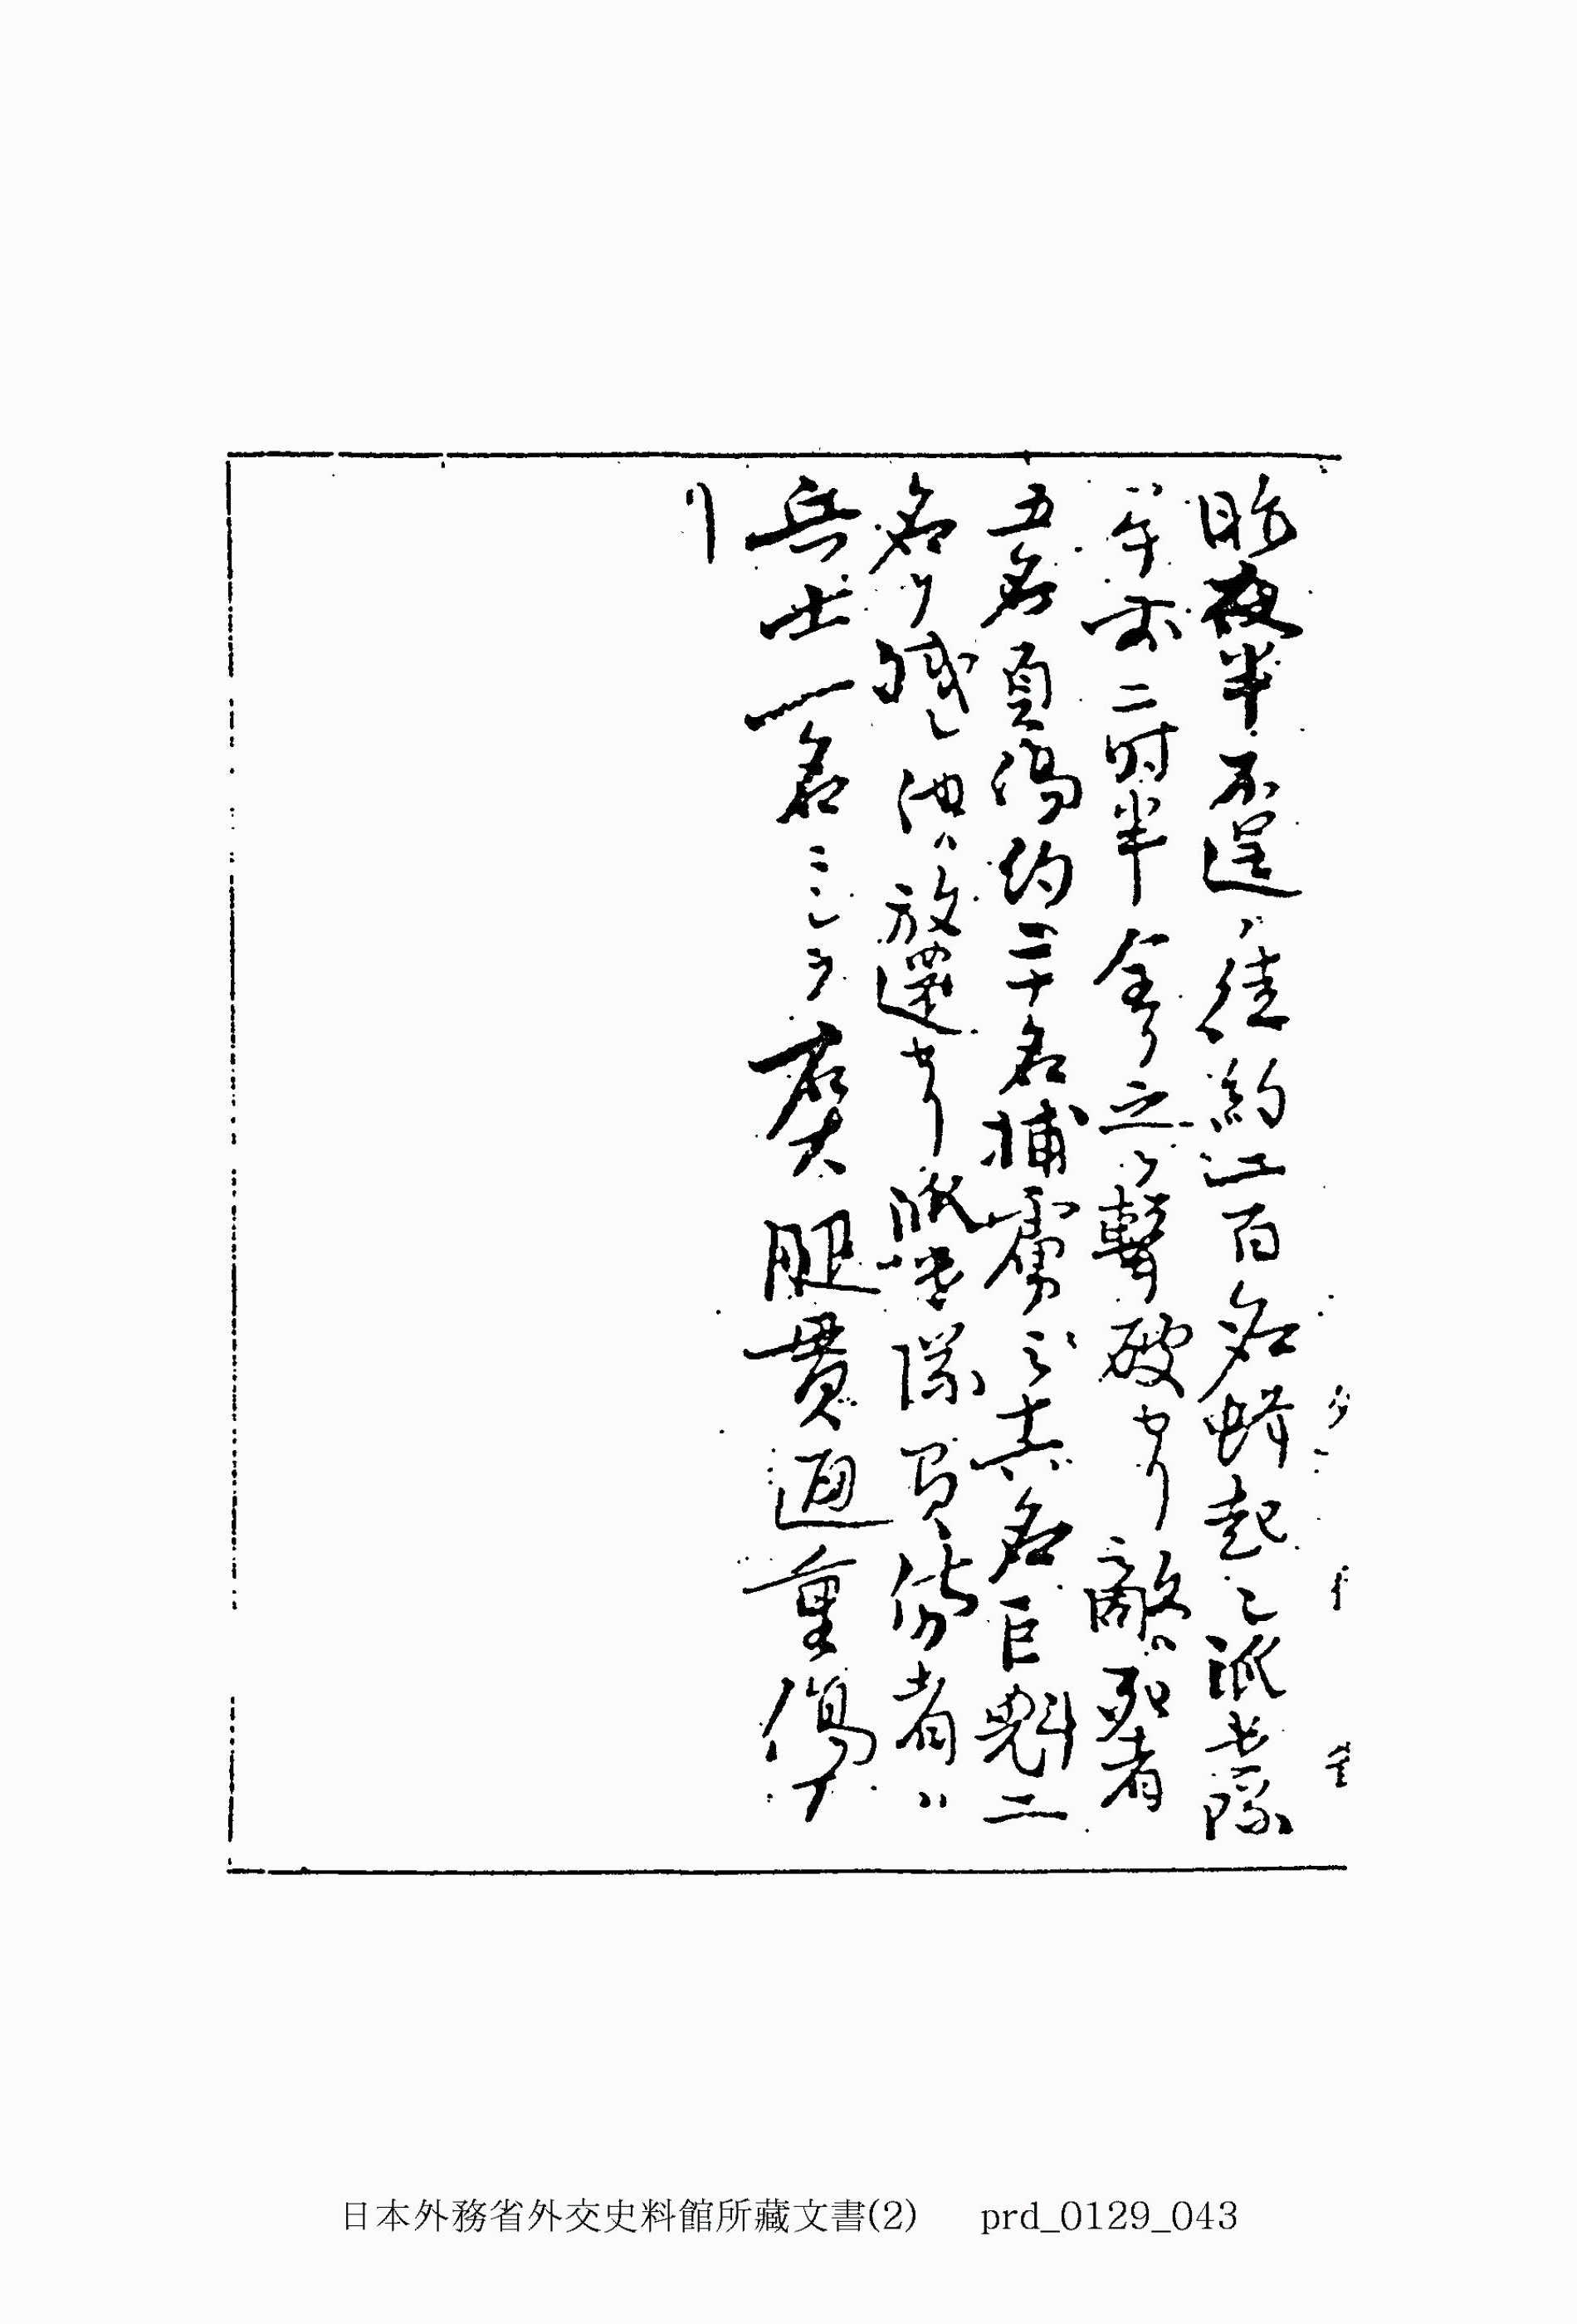 昨夜半不逞ノ徒約二百名蜂起シ派出隊
ハ午前二時半全ク之ヲ撃破セリ敵ハ死者
五名負傷約二十名捕虜ハ十六名巨魁二
名ヲ残シ他ハ放還セリ派出隊負傷者ハ
兵士一名ニシテ左大腿貫通重傷ナ
リ
日本外務省外交史料館所藏文書(2) prd_0129_043